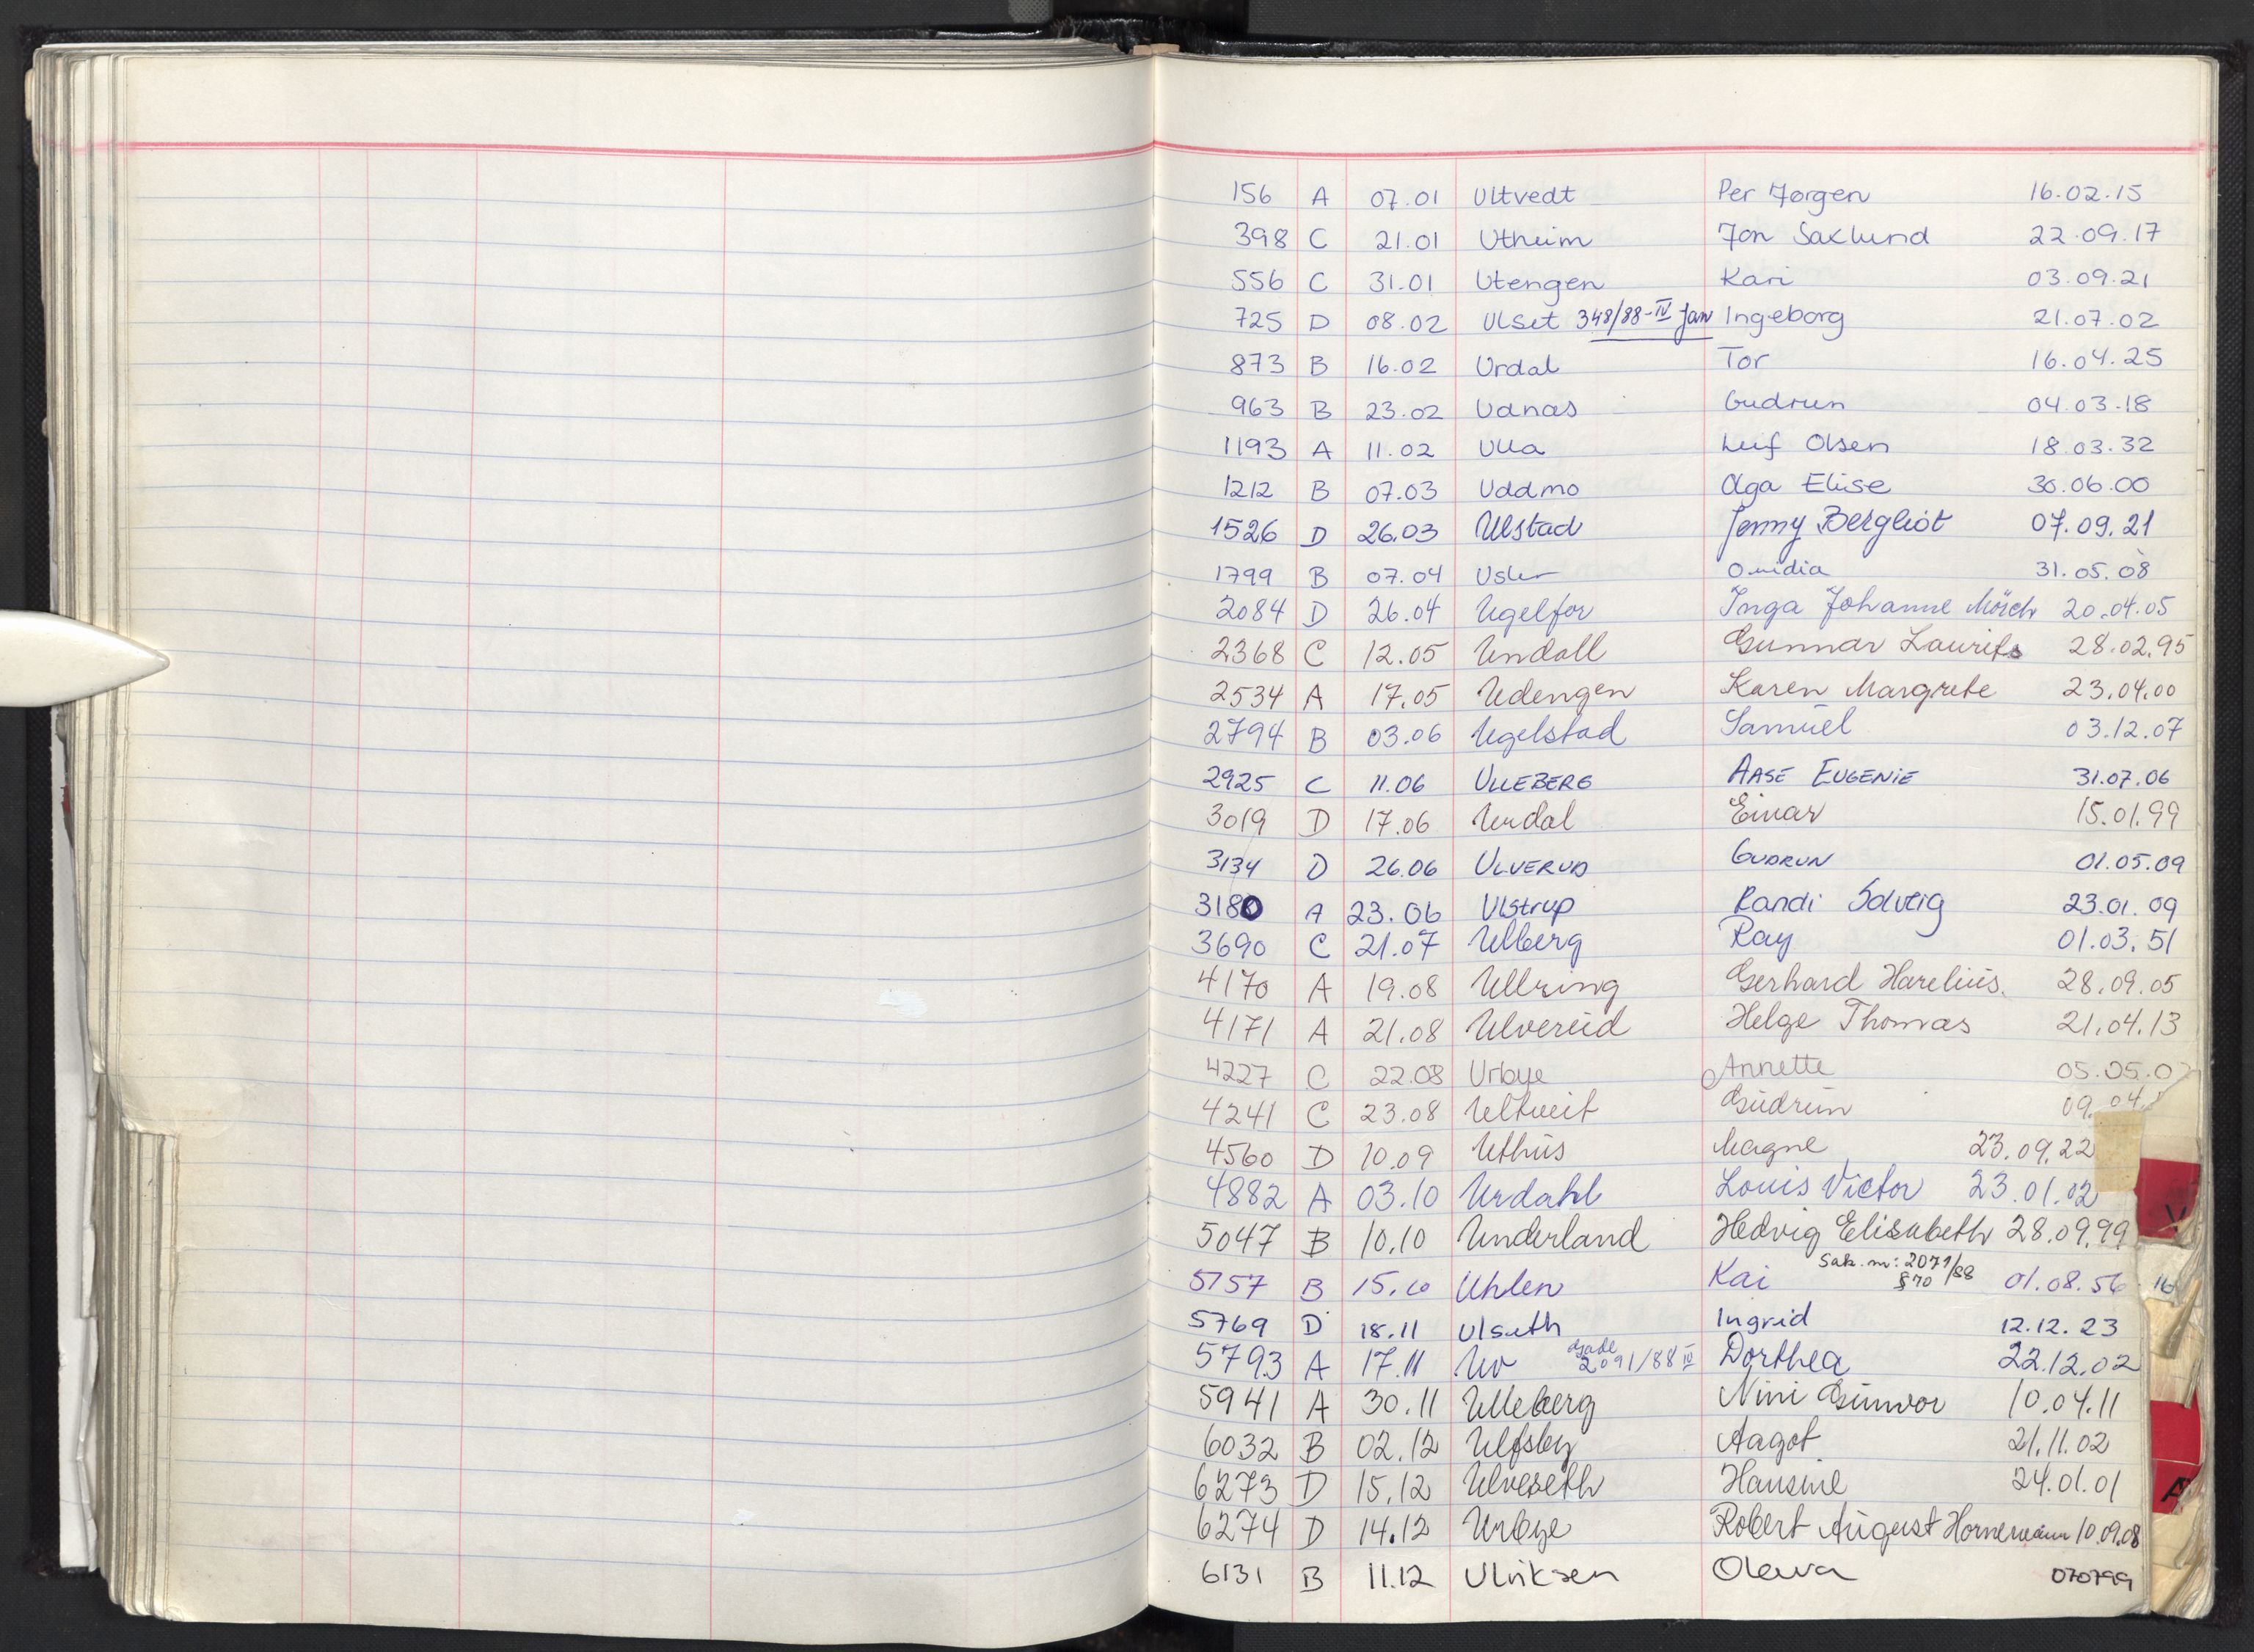 156 A 07.01 Ultvedt Per Jørgen 16.02.15
398 C 21.01 Utheim Jon Saxlund 22.09.17
556 C 31.01 Utengen Kari 03.09.21
725 D 08.02 Ulset 348/88-IV Jan Ingeborg 21.07.02
873 B 16.02 Urdal Tor 16.04.25
963 B 23.02 Udnæs Gudrun 04.03.18
1193 A 11.02 Ulla Leif Olsen 18.03.32
1212 B 07.03 Uddmo Olga Elise 30.06.00
1526 D 26.03 Ulstad Jenny Bergliot 07.09.21
1799 B 07.04 Usler Ovidia 31.05.08
2084 D 26.04 Ugelfor Inga Johanne Mörch 20.04.05
2368 C 12.05 Undall Gunnar Laurits 28.02.95
2534 A 17.05 Udengen Karen Margrete 23.04.00
2794 B 03.06 Ugelstad Samuel 03.12.07
2925 C 11.06 ULLEBERG AASE EUGENIE 31.07.06
3019 D 17.06 Urdal Einar 15.01.99
3134 D 26.06 ULVERUD GUDRUN 01.05.09
3180 A 23.06 Ulstrup Randi Solveig 23.01.09
3690 C 21.07 Ulberg Ray 01.03.51
4170 A 19.08 Ullring Gerhard Harelius. 28.09.05
4171 A 21.08 Ulvereid Helge Thomas 21.04.13
4227 C 22.08 Urbye Annette 05.05.0
4241 C 23.08 Ultveit Gudrun 09.04.
4560 D 10.09 Uthus Magne 23.09.22
4882 A 03.10 Urdahl Louis Victor 23.01.02
V
5047 B 10.10 Underland Hedvig Elisabeth 28.09.99
Sak.nr: 2071/88
§70
5157 B 15.10 Uhlen Kai 01.08.56 16
5769 D 18.11 Ulseth Ingrid 12.12.23
5793 A 17.11 Uv 2091/88 IV Dorthea 22.12.02
5941 A 30.11 Ulleberg Nini Gunvor 10.04.11
6032 B 02.12 Ulfsby Aagot 21.11.02
6273 D 15.12 Ulveseth Hansine 24.01.01
6274 D 14.12 Urbye Robert August Hornemann 10.09.08
6131 B 11.12 Ulriksen Oleva 070799